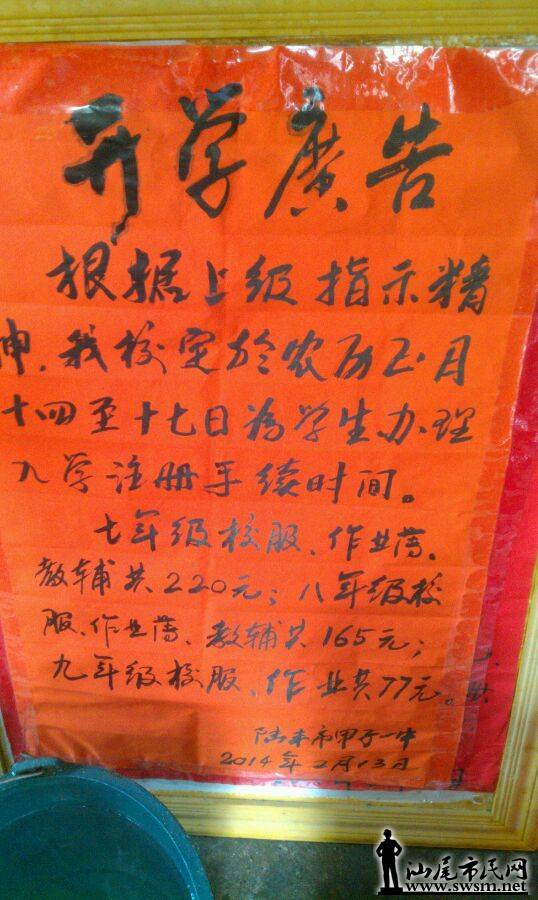 开学廣告
根据上级指示精
神，我校定於农历正月
十四至十七日為学生办理
入学注册手续时间。
七年级校服、作业薄、
教辅共220元；八年级校
服、作业薄、教辅共165元；
九年级校服、作业共77元。
陆丰市甲子一中
2014年2月13日
汕尾市民网
www.swsm.net